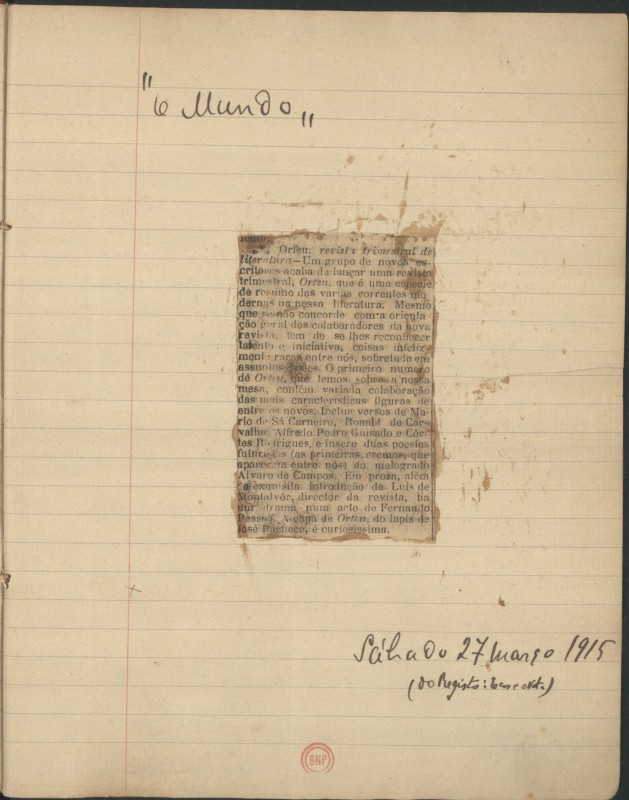 "O Mundo"
Orfeu, revista trimestral de
literatura—Um grupo de novos es-
critores acaba de lançar uma revista
trimestral, Orfeu, que é uma especie
de resumo das varias correntes mo-
dernas na nossa literatura. Mesmo
que se não concorde com a orienta-
ção geral dos colaboradores da nova
revista, tem de se lhes reconhecer
talento e iniciativa, coisas infeliz-
mente raras entre nós, sobretudo em
assuntos destes. O primeiro numero
de Orfeu, que temos sobre a nossa
mesa, contém variada colaboração
das mais caracteristicas figuras de
entre os novos. Inclue versos de Ma-
rio de Sá Carneiro, Ronald de Car-
valho, Alfredo Pedro Guisado e Côr-
tes Rodrigues, e insere duas poesias
futuristas (as primeiras, cremos, que
aparecem entre nós) do malogrado
Alvaro de Campos. Em prosa, além
da exquisita introdução de Luis de
Montalvôr, director da revista, ha
um drama num acto de Fernando
Pessôa. A capa de Orfeu, do lapis de
José Pacheco, é curiosissima.
Sábado 27 março 1915
(do Registo:
BNP